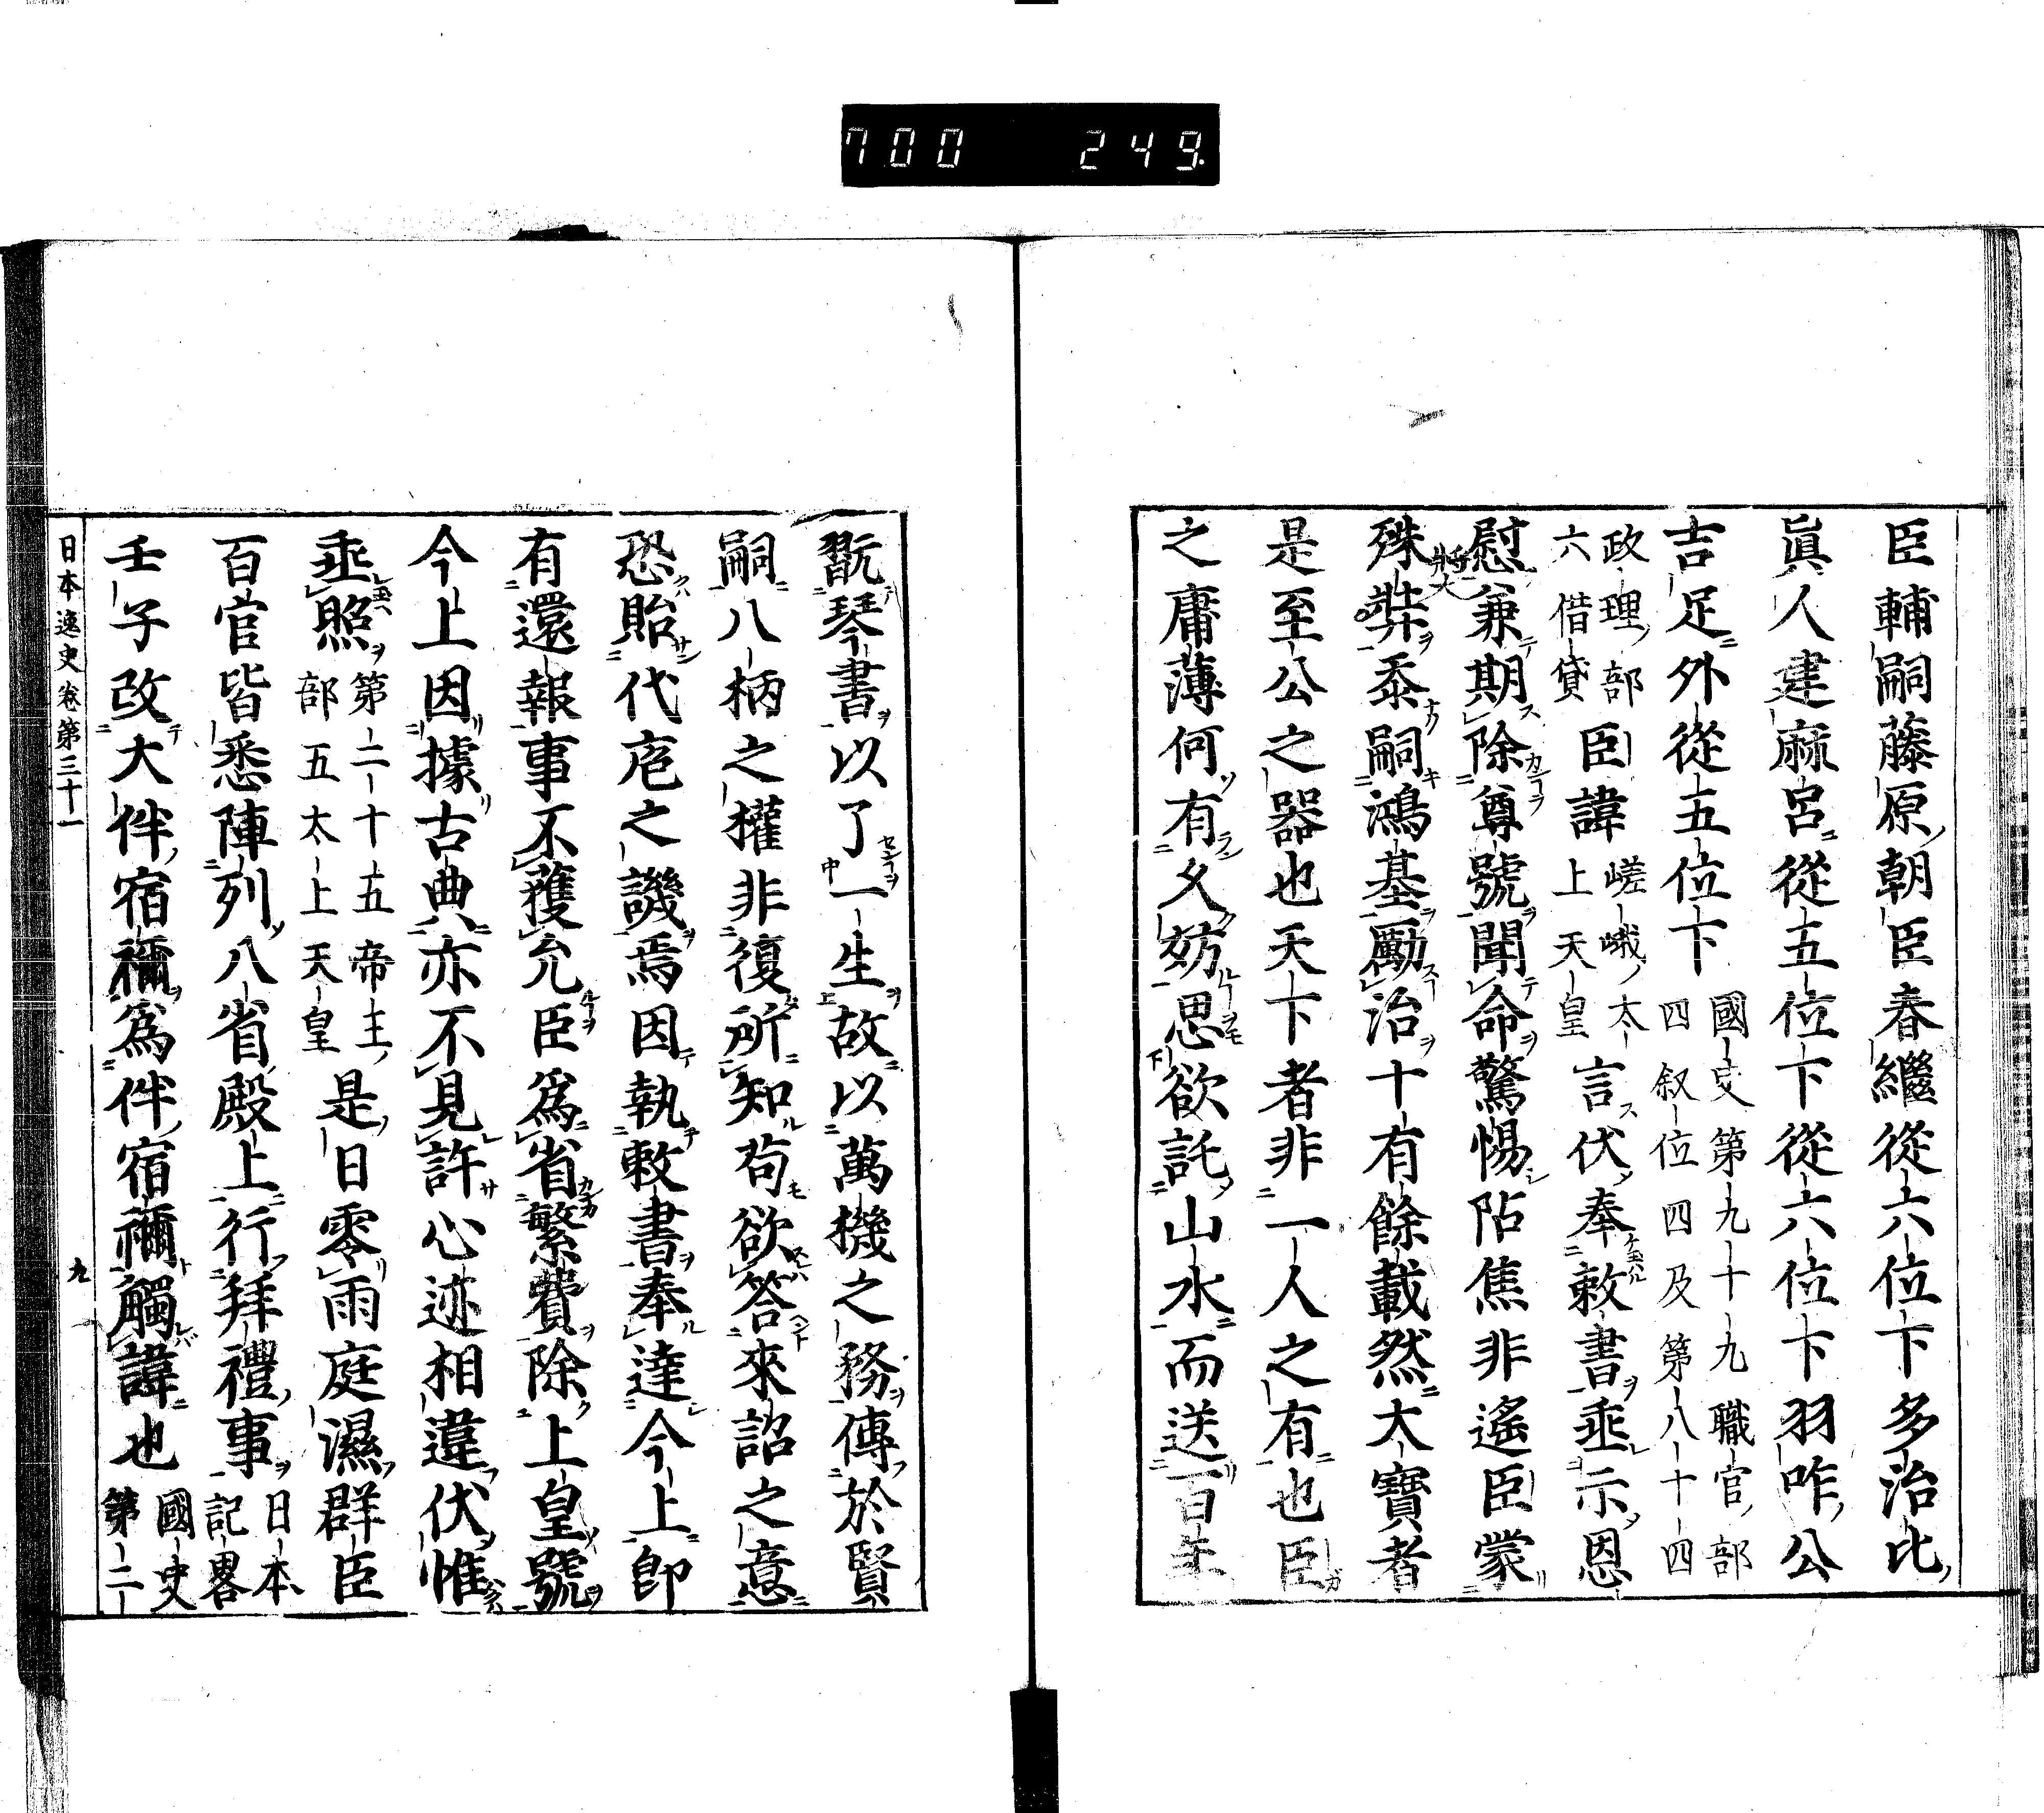 700 249
臣輔嗣藤原朝臣春繼從六位下多治比
眞人建麻呂從五位下從六位下羽咋公
吉足外從五位下 國史第九十九職官部
四叙位四及第八十四
政理部
六借貸 臣諱 嵯峨太
上天皇 言伏奉敕書垂示恩
慰兼期除尊號聞命驚惕阽焦非遙臣蒙
殊弉忝嗣鴻基勵治十有餘載然大寶者
是至公之器也天下者非一人之有也臣
之庸薄何有久妨思欲託山水而送百年
翫琴書以了一生故以萬機之務傳於賢
嗣八柄之權非復所知苟欲答來詔之意
恐貽代庖之譏焉因執敕書奉達今上卽
有還報事不獲允臣爲省繁費除上皇號
今上因據古典亦不見許心迹相違伏惟
垂照 第二十五帝王
部五太上天皇 是日零雨庭濕群臣
百官皆悉陣列八省殿上行拜禮事 日本
記畧
壬子改大伴宿禰爲伴宿禰觸諱也 國史
第二
日本逸史卷第三十一 九